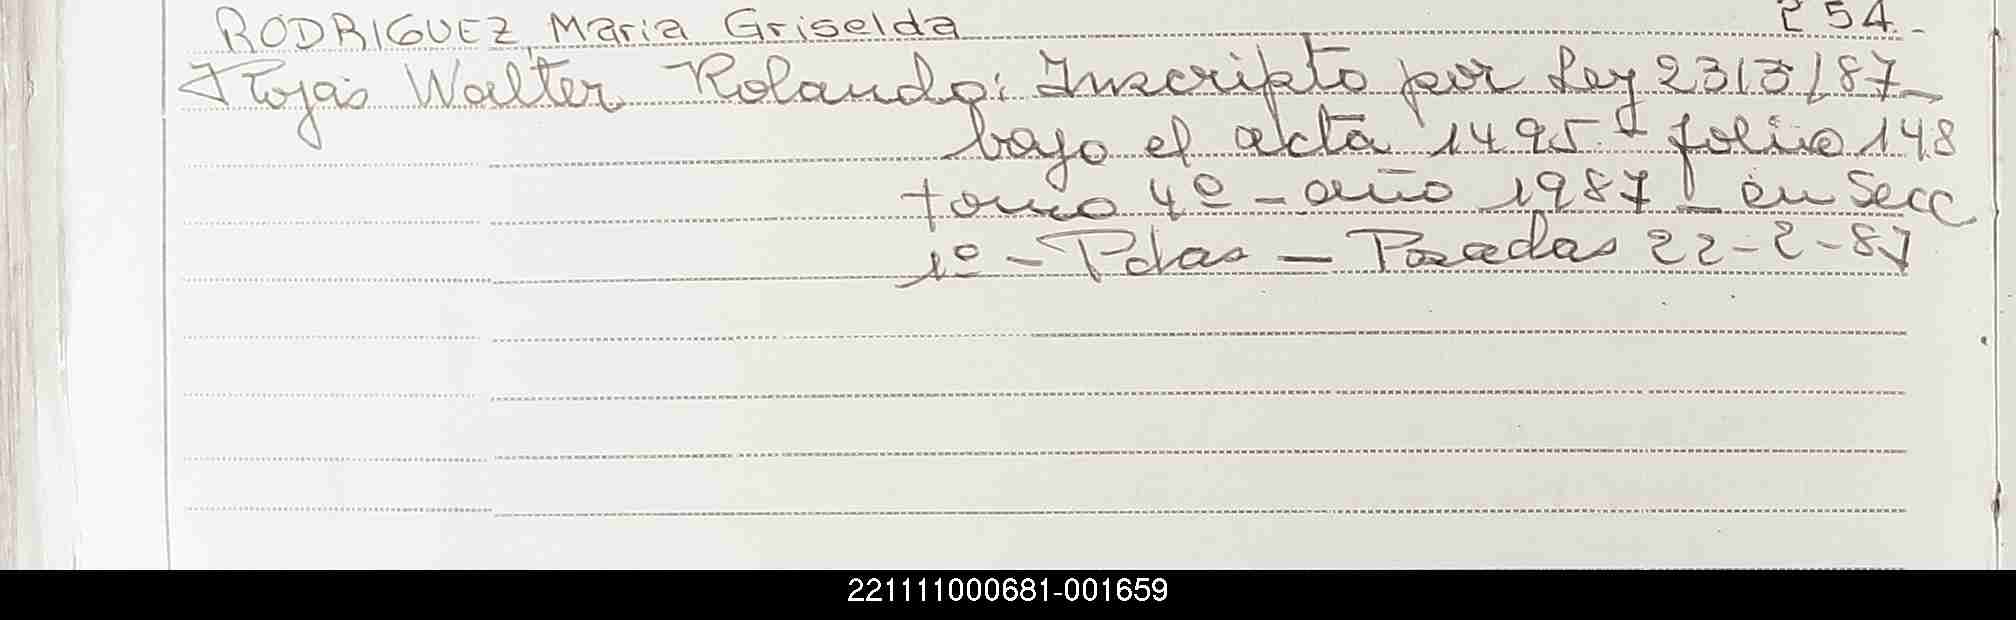 RODRIGUEZ, Maria Griselda 254.-
Rojas Walter Rolando: Inscripto por Ley 2313/87-
bajo el acta 1495 - folio 148
tomo 4º - año 1987 - en Secc
1º - Pdas - Posadas 22-2-87
221111000681-001659